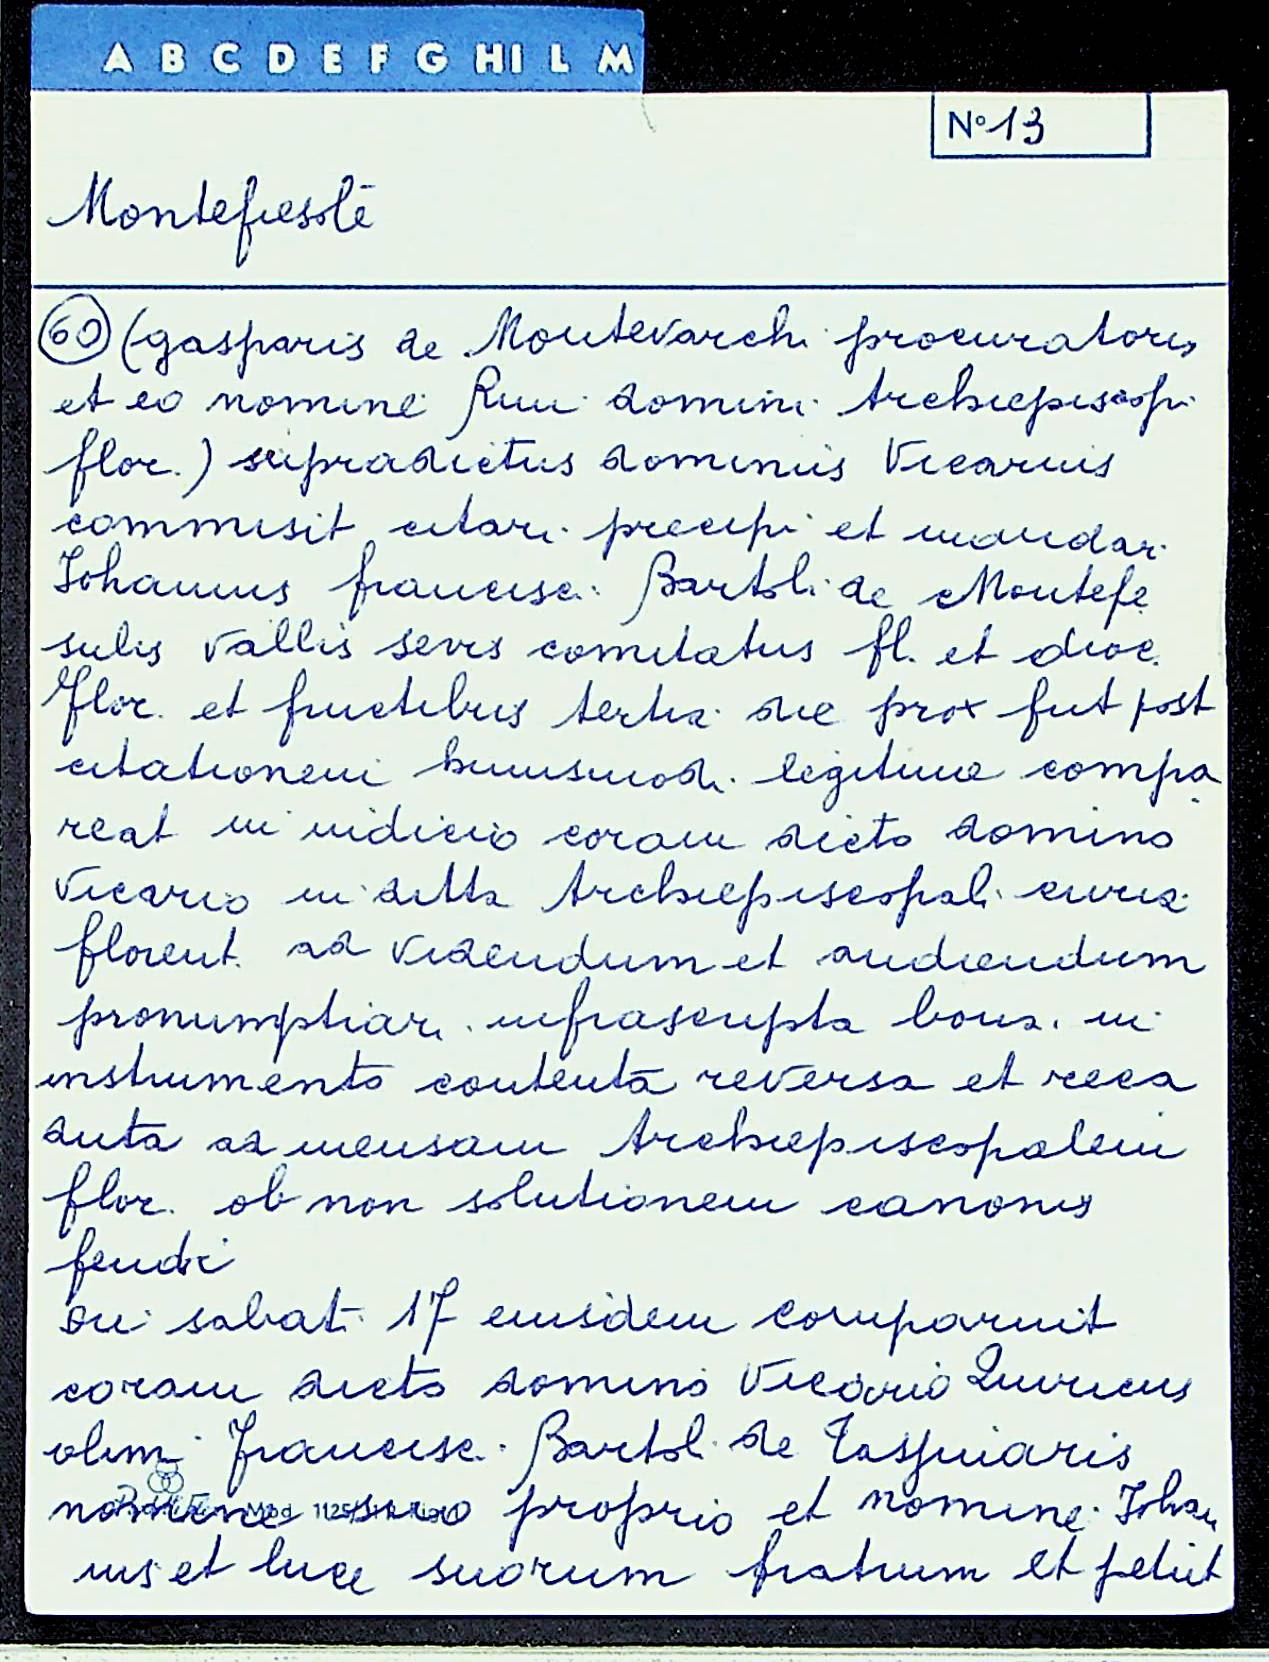 A B C D E F G HI L M
N° 13
Montefiesolē
60 (gasparis de Montevarchi procuratoris
et eo nomine Rmi domini Archiepiscopi
flor.) supradictus dominus Vicarius
commisit citari precipi et mandari
Johannis francisci Bartoli de Montefe
sulis vallis sevis comitatus fl. et dioc.
flor. et fructibus tertia die prox fut post
citationem huiusmodi legitime compa
reat in iudicio coram dicto domino
Vicario in ditta Archiepiscopali curia
florent. ad videndum et audiendum
pronumptiari infrascripta bona in
instrumento contenta reversa et reca
duta ad mensam Archiepiscopalem
flor. ob non solutionem canonis
feudi
Die sabati 17 eiusdem comparuit
coram dicto domino Vicario Quiricus
olim francisc. Bartol. de
nomine suo proprio et nomine Johan
nis et luce suorum fratrum et petiit